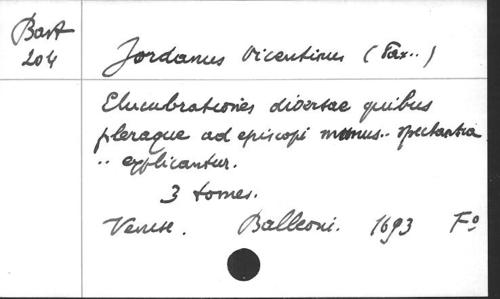 Bart
204
Jordanus Vicentinus (Pax..)
Elucubrationes diversae quibus
pleraque ad episcopi munus.. spectantia
.. explicantur.
3 tomes.
Venise. Balleoni. 1693 Fº